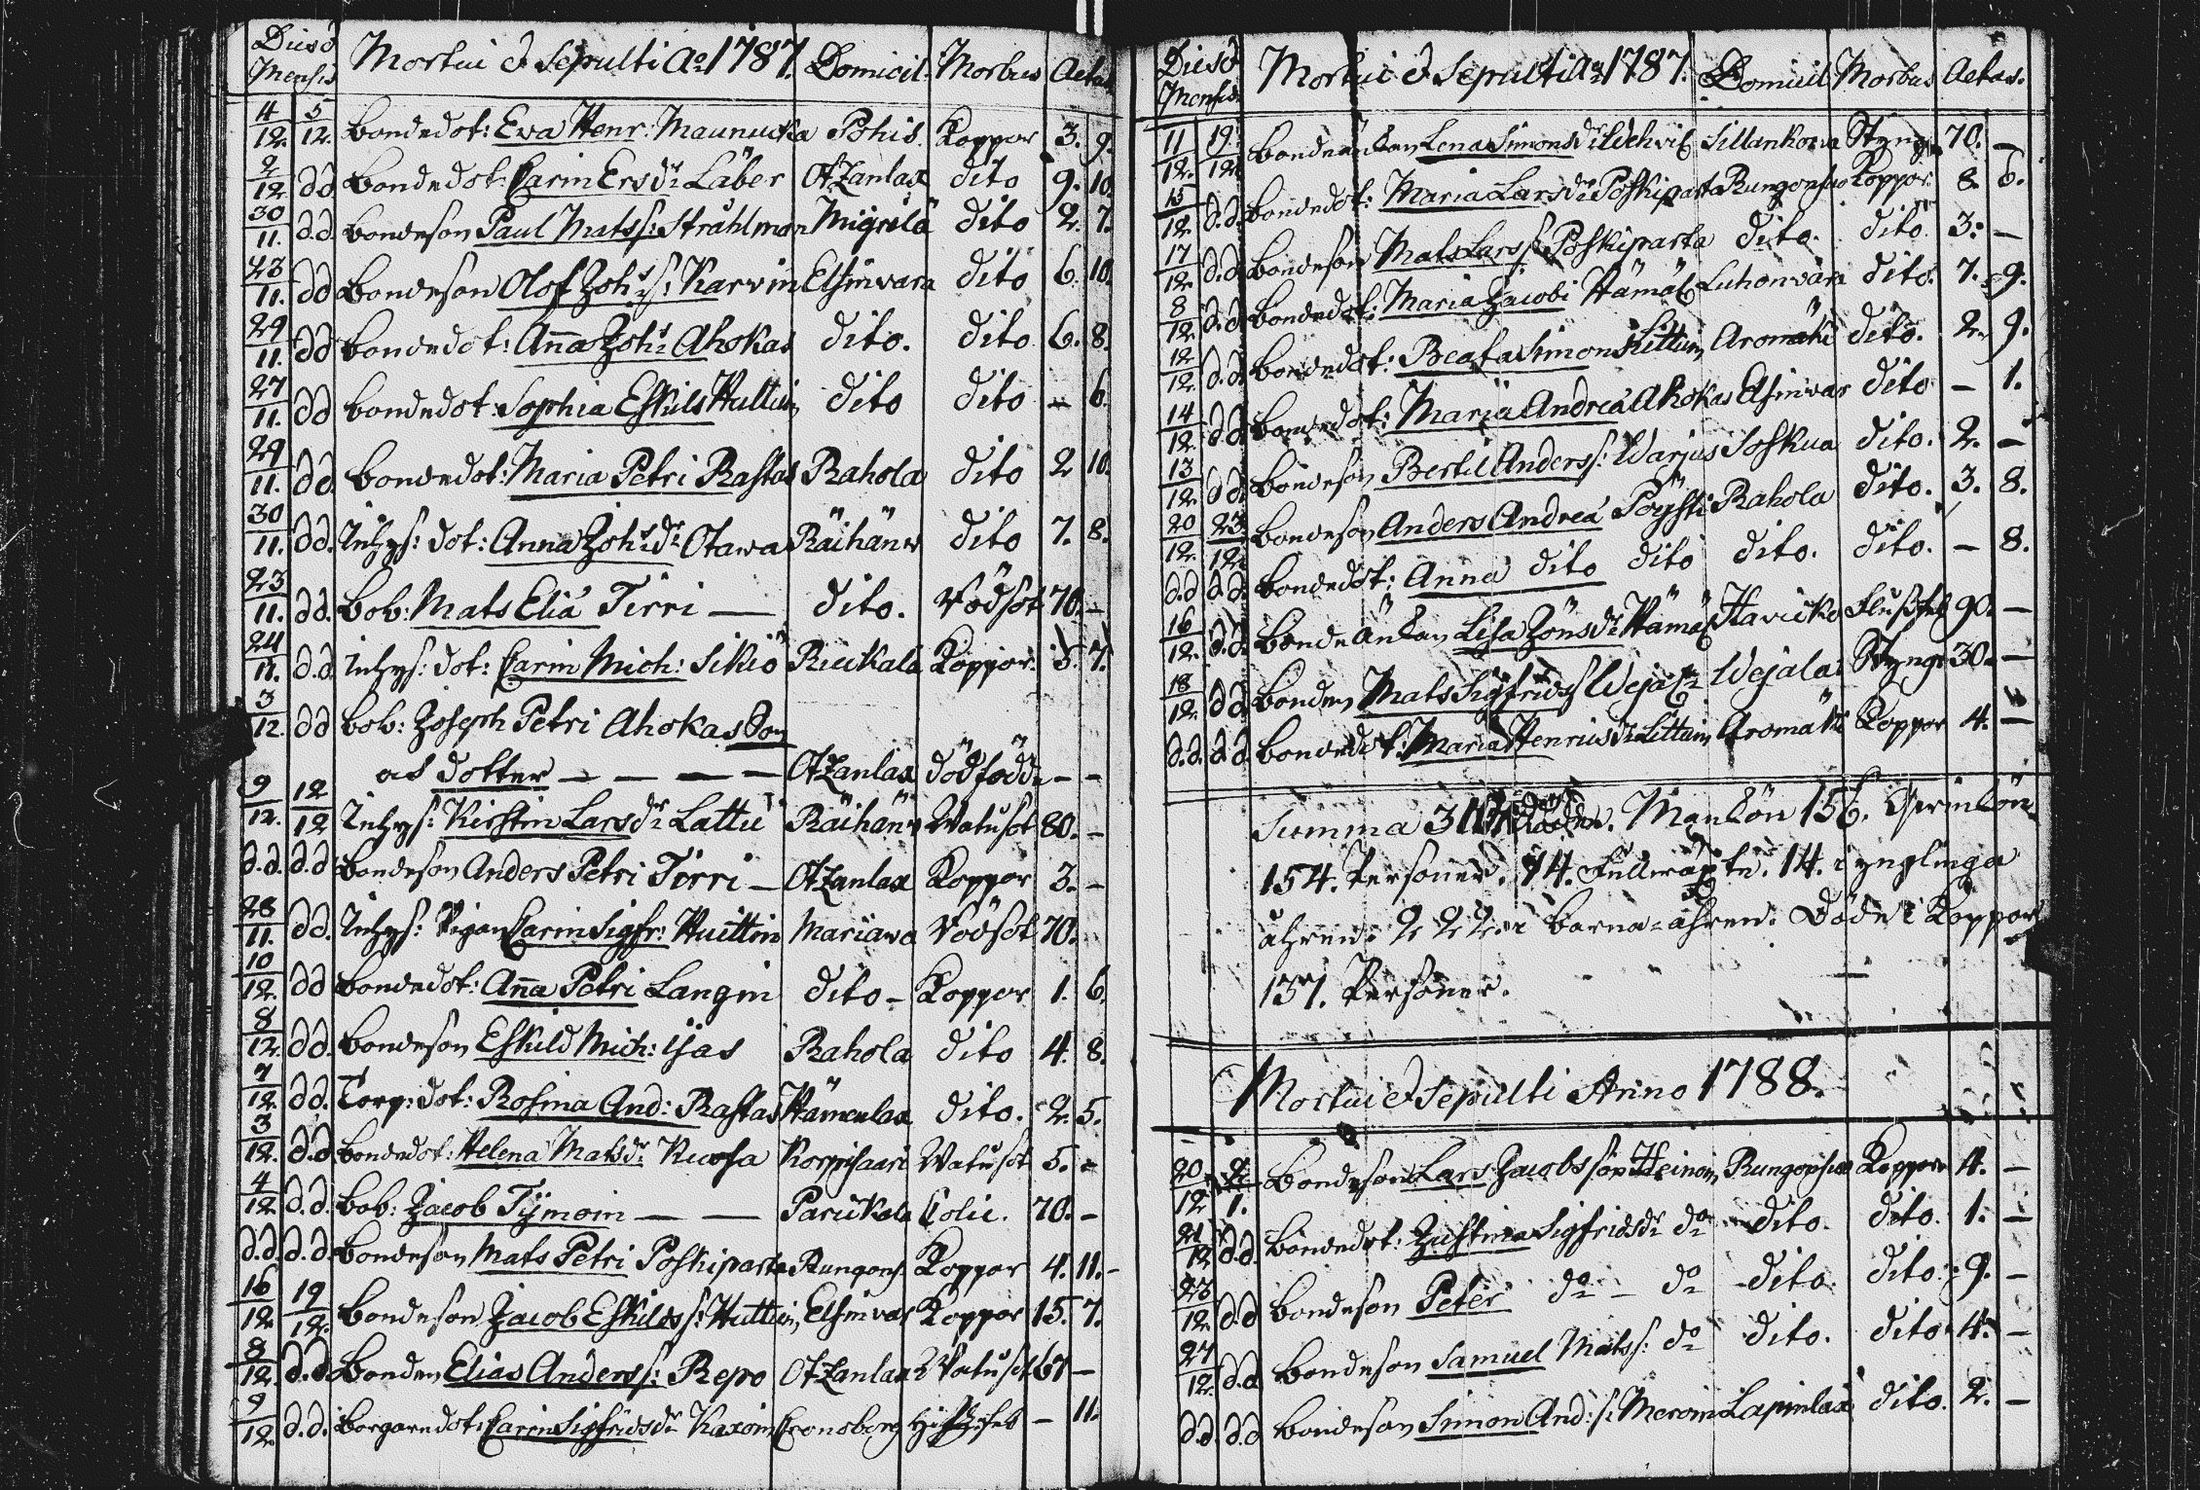 Dies & Mensis Mortui & Sepulti Ao 1787. Domicil. Morbus Aetas
4/12. 5/12. Bondedot: Eva Henr: Maunucka Pohis. Koppor 3. 9.
2/12 dd Bondedot: Carin Ersdr Läber Otzanlax dito 9. 10.
30/11. d.d. Bondeson Paul Matss: Stråhlman Migrälä dito 2. 7.
23/11. dd Bondeson Olof Joh:s: Karvin Elsinvara dito 6. 10.
29/11. dd Bondedot: Anna Joh: Ahokas dito. dito 6. 8.
27/11. dd Bondedot: Sophia Eskils Huttuin dito dito – 6.
29/11. dd. Bondedot: Maria Petri Rastas Rahola dito 2 10.
30/11. dd. Inhys: dot: Anna Joh:dr Otawa Räihän: dito 7. 8.
23/11. dd. Bob: Mats Eliä Tirri — dito. Vådsot 70. –
24/11. d.d. Inhys: dot: Carin Mich: Sikiö Ricikala Koppor. 5. 7.
3/12. dd Bob: Joseph Petri Ahokas Son
as dotter — — — — Otzanlax dödfödde – –
9/12. 12/12 Inhys: Kirstin Larsdr Lattu Räihän: Watusot 80. –
d.d. d.d Bondeson Anders Petri Tirri — Otzanlax Koppor 3. –
28/11. dd. Inhys: Pigan Carin Sigfr: Huittin Mariawa Vådsot 70.
10/12. dd Bondedot: Anna Petri Langin dito – Koppor 1. 6.
8/12. dd. Bondeson Eskild Mich: Ijas Rahola dito 4. 8.
7/12. dd. Torp: dot: Rosina And: Rastas Hämenlax dito. 2. 5.
3/12. d.d Bondedot: Helena Matsdr Kuosa Korpisaari Watusot 5. –
4/12. d.d. Bob: Jacob Tÿmoin — — Parikala Colic. 70. –
d.d. d.d. Bondeson Mats Petri Poskiparta Rungons. Koppor 4. 11. –
16/12. 19/12. Bondeson Jacob Eskilss: Huttuin Elsinvar Koppor 15. 7.
8/12. d.d. Bonden Elias Anderss: Repo Otzanlax Watusot 67 –
9/12. d.d. Borgaredot: Carin Sigfridsdr Karoin Cronoborg – 11.
Dies & Mensis Mortui & Sepulti Ao 1787. Domicil Morbus Aetas.
11/12. 19/12. Bondeänkan Lena Simonsdr Sillankorva Styng 70. –
15/12 d.d. Bondedot: Maria Larsdr Poskiparta Rungonsuo Koppor. 8. 6.
17/12. d.d. Bondeson Mats Larss: Poskiparta dito. dito. 3: –
8/12. d.d. Bondedot: Maria Jacobi Hämäl: Luhonvara dito. 7. 9.
12/12. d.d. Bondedot: Beata Simons Littuin Aromäki dito. 2. 9.
14/12. dd. Bondedot: Maria Andreä Ahokas Elsinvar dito – 1.
13/12. dd. Bondeson Bertil Anderss: Warjus Soskua dito. 2. –
20/12. 23/12. Bondeson Anders Andreä Pöysti Rahola dito. 3. 8.
d.d d.d. Bondedot: Anna dito dito dito. dito. – 8.
16/12. d.d. Bondeänkan Lisa Jönsdr Hämäl: Havicko Flussfeb 90. –
18/12. dd. Bonden Mats Sigfridss: Wejal: Wejala Styng 30. –
d.d. d.d Bondedot: Maria Henricsdr Littuin Aromäki Koppor 4. –
Summa 310 döde. Mankön 156. Qwinkön
154. Personer. 74. Fullwäxte. 14. i ynglinga
åhren. 222. i barna-åhren. Döde i Koppor
137. Personer.
Mortui & Sepulti Anno 1788.
20/12 1. Bondeson Lars Jacobsson Heinoin Rungonsuo Koppor 4. –
21/12 d.d. Bondedot: Justina Sigfridsdr do dito. dito. 1. –
23/12. d.d Bondeson Peter do – do dito. dito. 9. –
27/12. d.d Bondeson Samuel Matss: do dito. dito. 4. –
d.d. d.d Bondeson Simon And:s: Meroin Lapinlax dito. 2. –